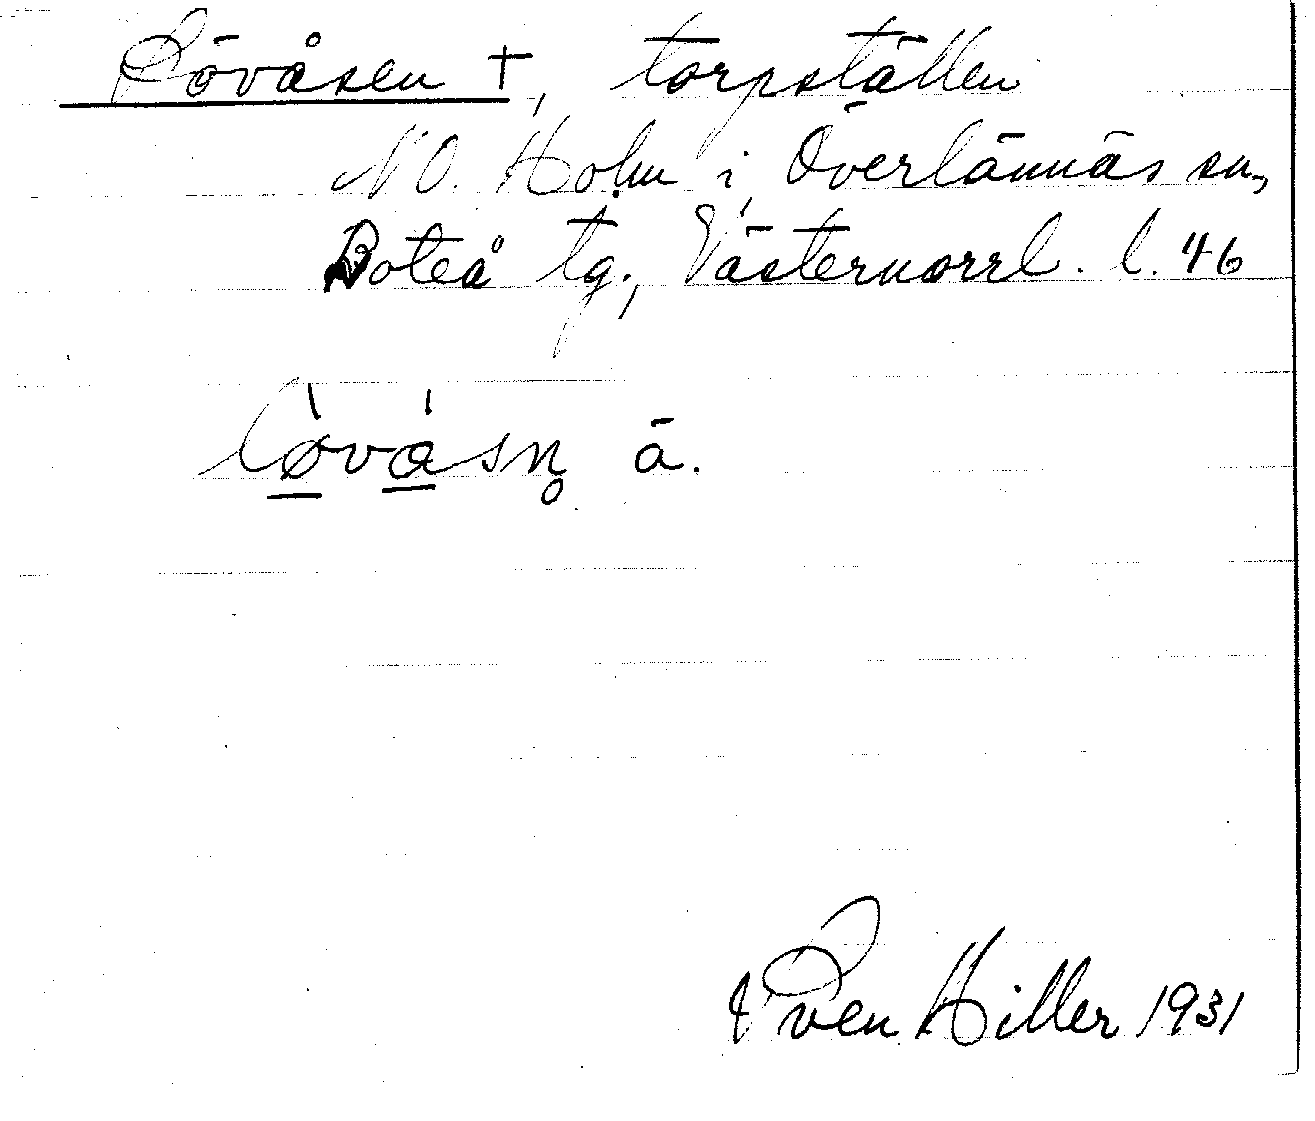 Lövåsen †, torpställen
NO. Holm i Överlännäs sn,
Boteå tg., Västernorrl. l. 46
lø̲̀vá̲sn̥ ā.
Sven Hiller 1931